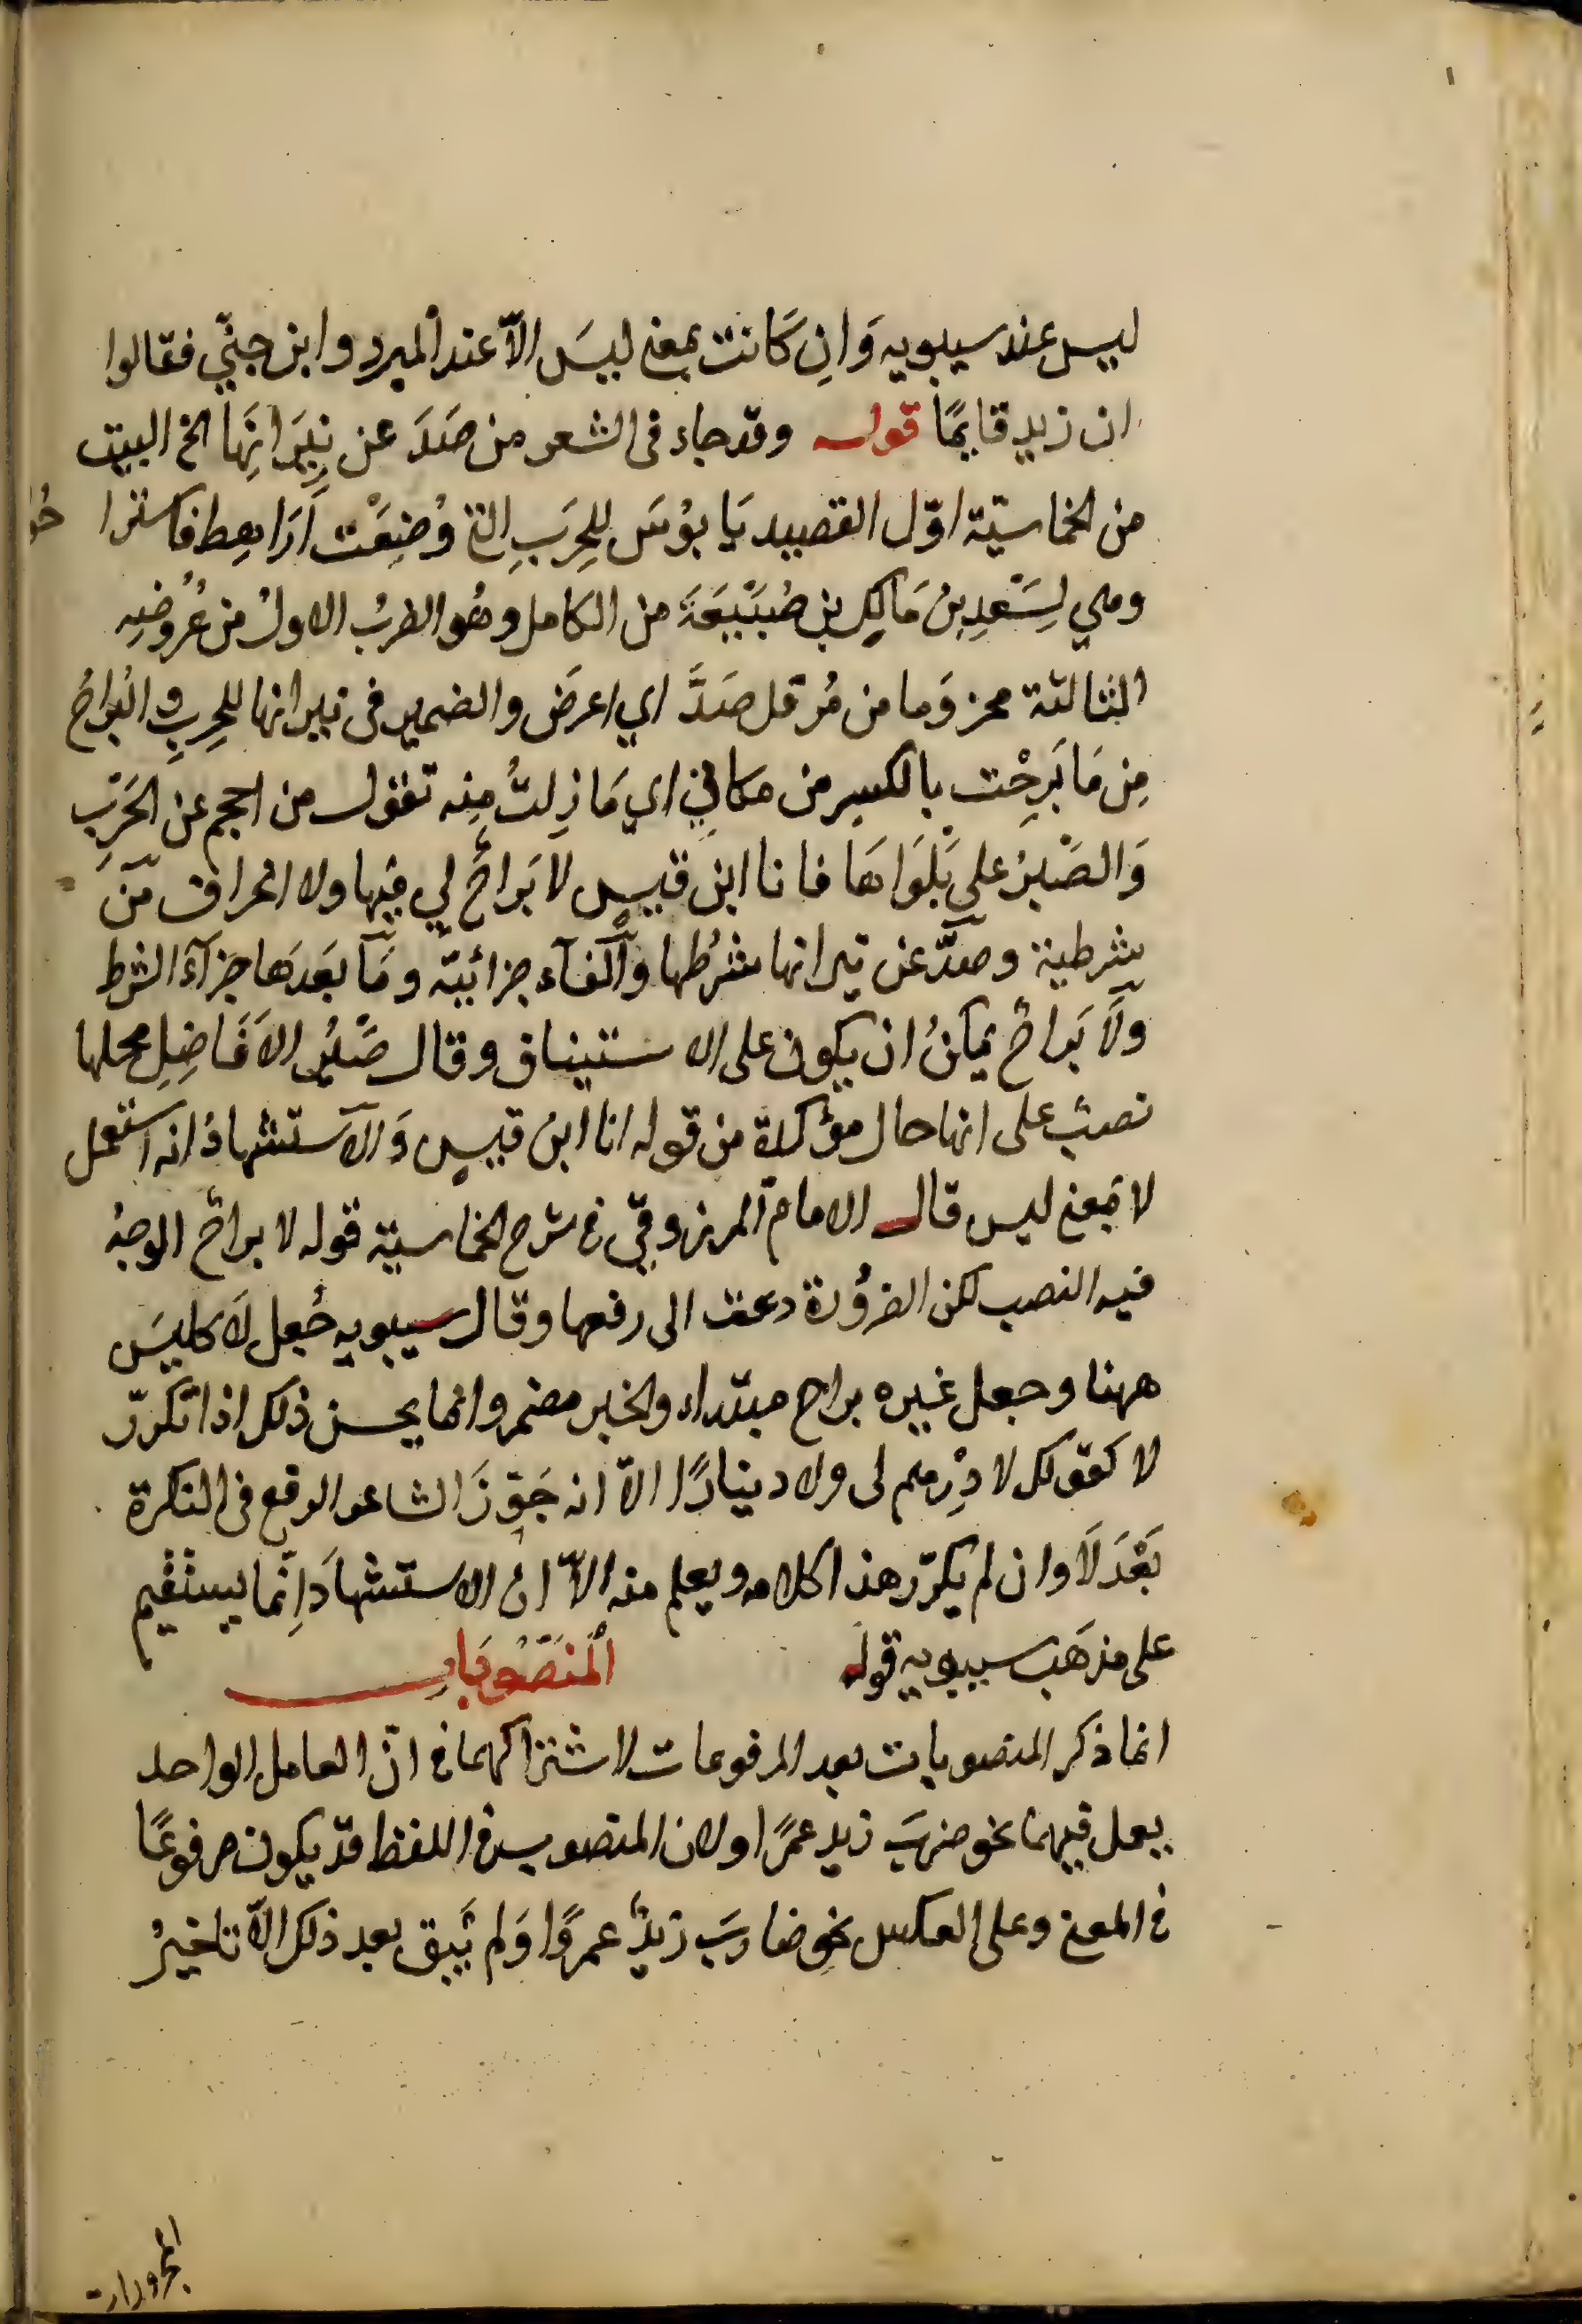 ليس عند سيبويه وَانِ كَانت بمعنى ليسَ الاّ عند المبرد وابن جنّي فقالوا
ان زيد قايمًا قوله وقد جاء فى الشعر من صَدَّ عن نِيرَانِهَا الخ البيت
من الحماسيّة اوّل القصيد يَا بوُسَ للحِرَبِ التى وُضِعَتْ اَرَاهِط فاستراحُوا
وهي لِسَعدِ بن مَالِكِ بن ضُبَيْعَةَ من الكامل وهُو الضربُ الاولُ من عُرُوضِهِ
الثالثة مجزوَما من مُرفل صَدَّ اي اعرَض والضمير فى نيرانها للحِربِ والبَراحُ
مِن مَا بَرِحْت بالكسرِ من مكاني اي مَا زِلتُ مِنه تقول من احجم عن الحَرْبِ
وَالصَبْرُ على بَلْوَاهَا فانا ابن قيس لا بَراحٌ لي فيها ولا انحراف مَنْ
شرطية وصدّ عن نيرانها شرطُها والفآء جزائيّة ومَا بَعدَهَا جزآءَ الشرط
ولَا بَراحٌ يمكنُ ان يكون على الاستيناف وقال صَدْرُ الاَفَاضِلِ محلها
نصبٌ على انها حال مؤكدة من قوله انا ابن قيس وَالاستشهادُ انه استعمل
لا بمعنى ليس قال الامام المرزوقيّ فى شرح الحماسية قوله لا براحٌ الوجهُ
فيه النصب لكن الضرُورة دعت الى رفعها وقال سيبويه جُعل لَا كليسَ
ههنا وجعل غيره براح مبتداء والخبر مضمر وانما يحسن ذلك اذا تكرّر
لا كقولك لا دِرهم لى ولا دينارًا الاّ انه جَوّزَ الشاعر الرفع فى النكرة
بَعْدَ لَا وان لم يكرّر هذا كلامه ويعلم منه الاّ انّ الاستشهادَ اِنّما يستقيم
على مذهَب سيبويه قوله المَنصُوبَات
انما ذكر المنصوبات بعد المرفوعات لاشتراكهما فى انّ العامل الواحد
يعمل فيهما نحو ضربَ زيد عمرًا ولان المنصوب فى اللفظ قد يكون مرفوعًا
فى المعنى وعلى العكس نحو ضاربَ زيدٌ عمروًا وَلم يَبق بعد ذلك الاّ تاخيرُ
المجرورات